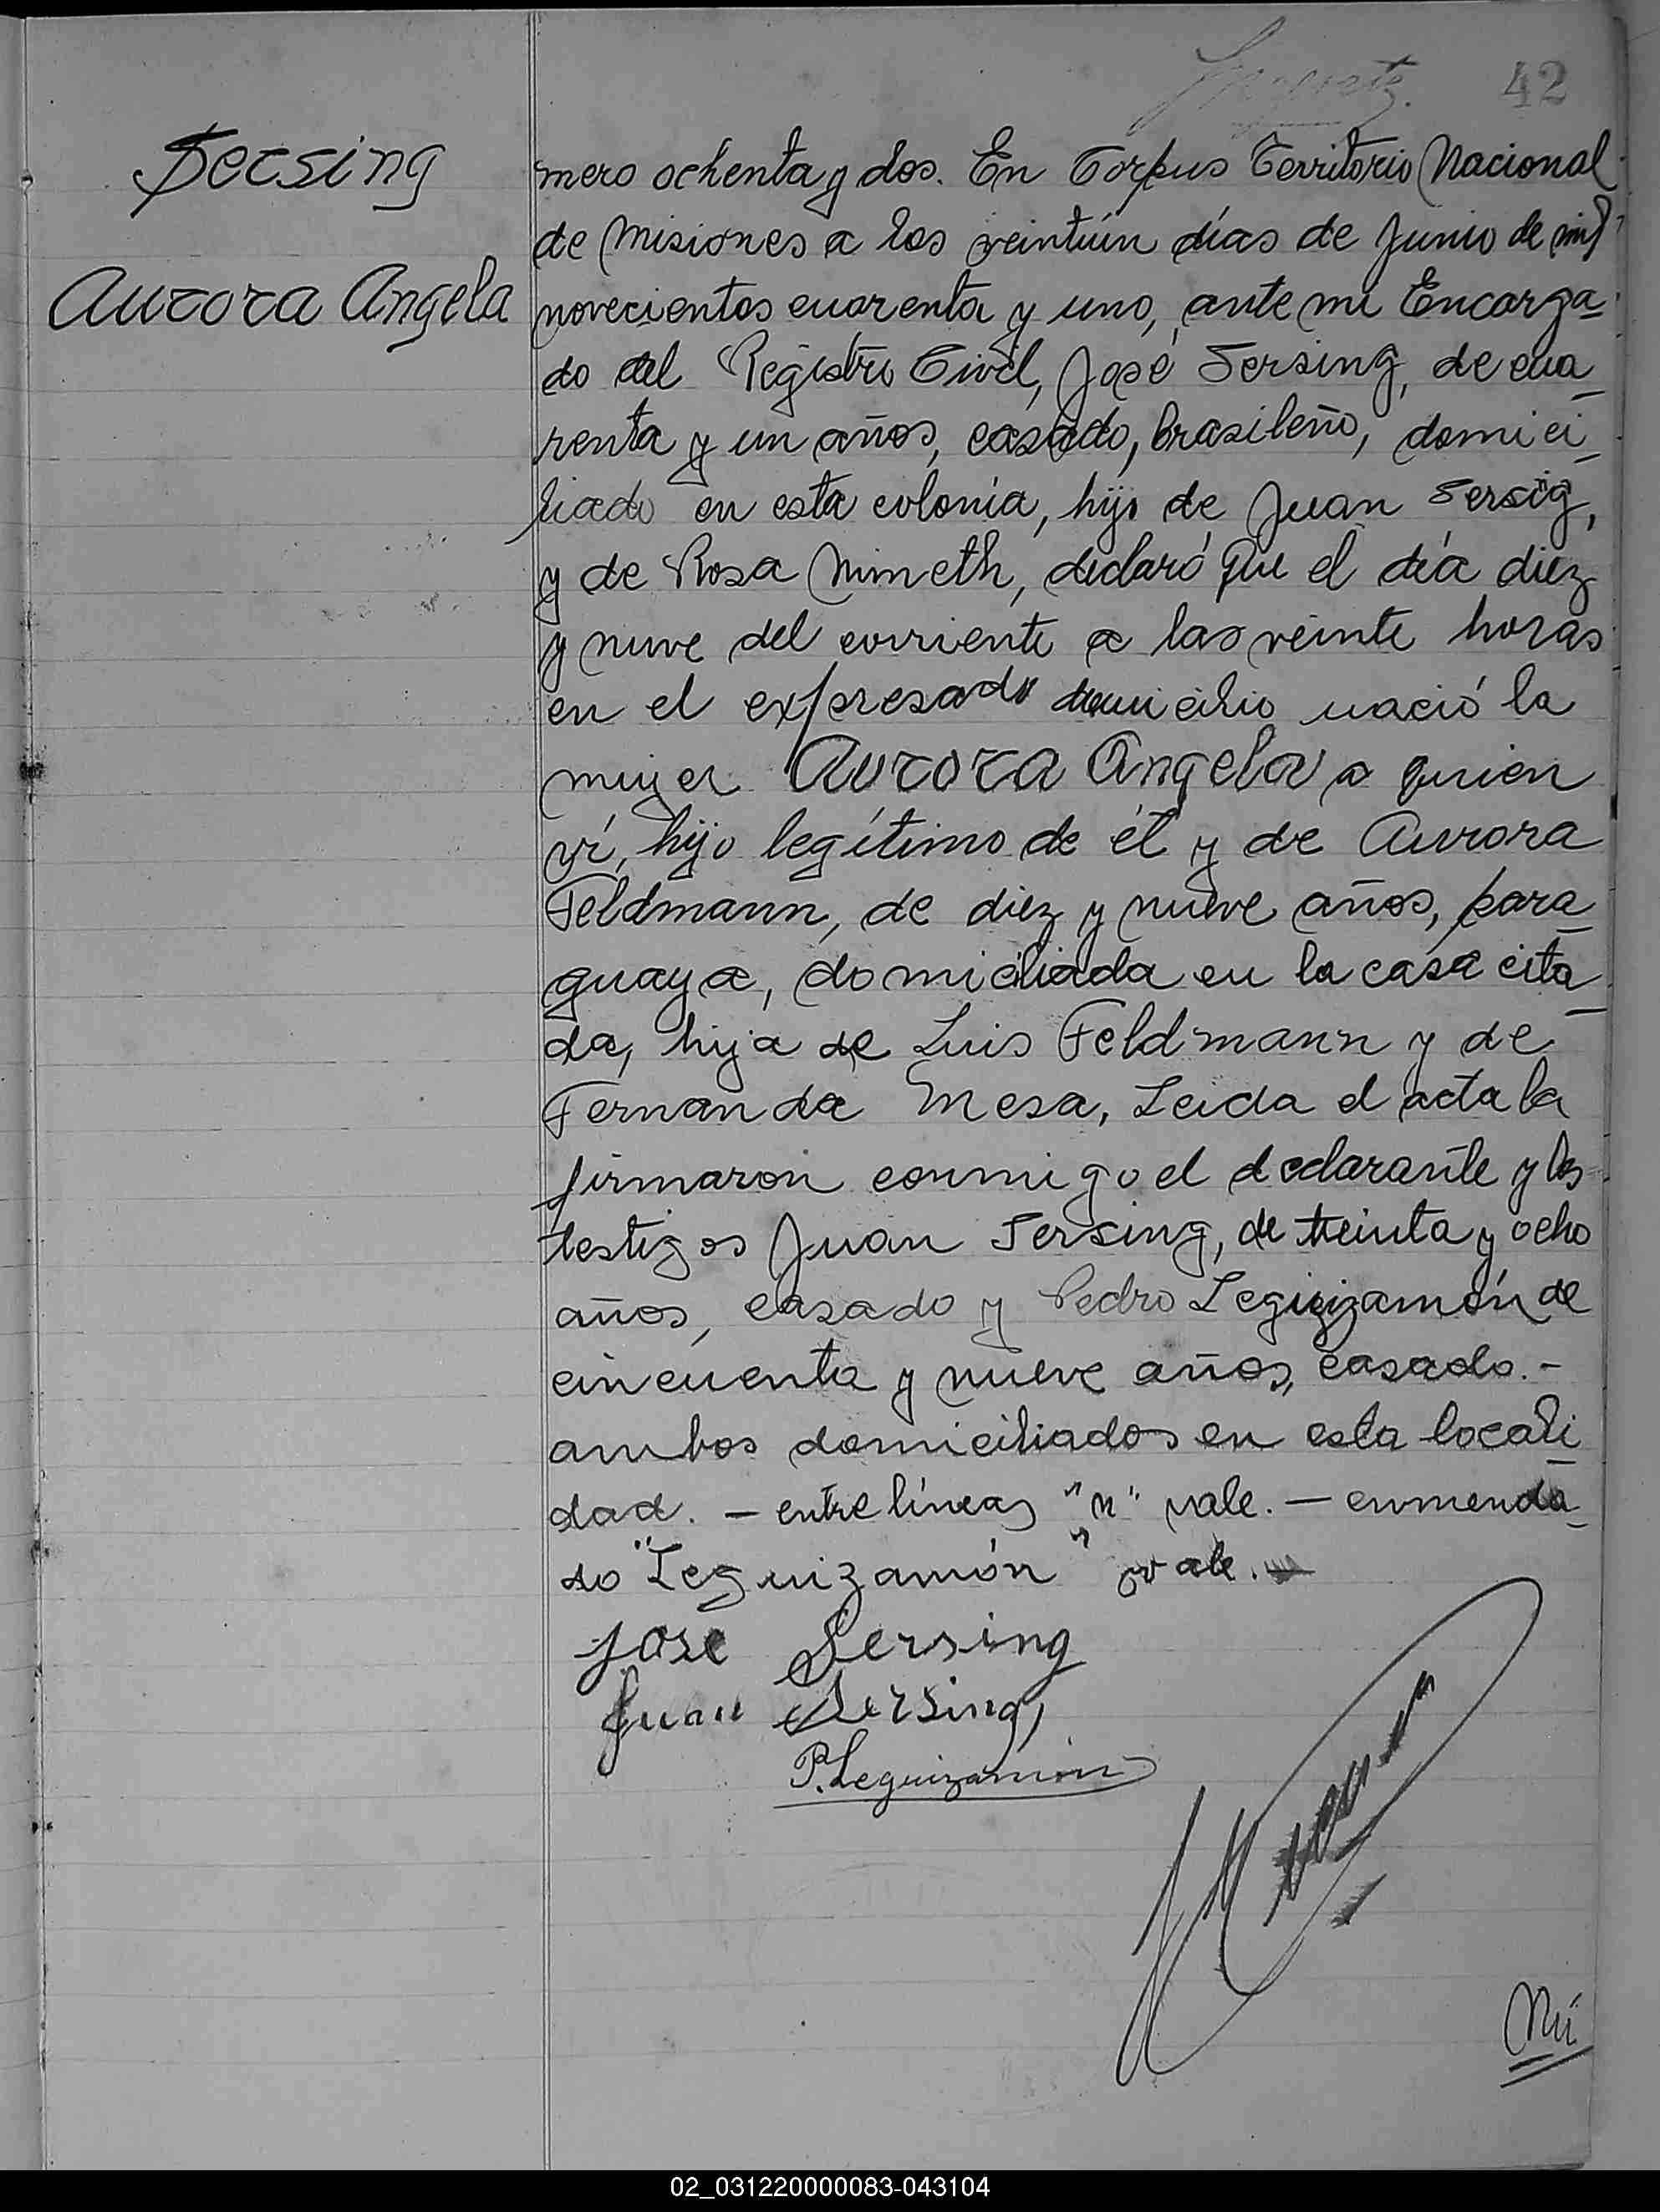 42
Sersing
Aurora Angela
mero ochenta y dos. En Corpus Territorio Nacional
de Misiones a los veintiún días de Junio de mil
novecientos cuarenta y uno, ante mi Encarga-
do del Registro Civil, José Sersing, de cua-
renta y un años, casado, brasileño, domici-
liado en esta colonia, hijo de Juan Sersig,
y de Rosa Nimeth, declaró que el día diez
y nuve del corriente a las veinte horas
en el expresado domicilio nació la
mujer Aurora Angela a quien
ví, hijo legítimo de él y de Aurora
Feldmann, de diez y nueve años, para-
guaya, domiciliada en la casa cita-
da, hija de Luis Feldmann y de
Fernanda Mesa, Leida el acta la
firmaron conmigo el declarante y los
testigos Juan Sersing, de treinta y ocho
años, casado y Pedro Leguizamón de
cincuenta y nueve años, casado.-
ambos domiciliados en esta locali-
dad. - entre líneas "n" vale. - enmenda-
do "Leguizamón" vale.
José Sersing
Juan Sersing
P. Leguizamón
Nú
02_031220000083-043104